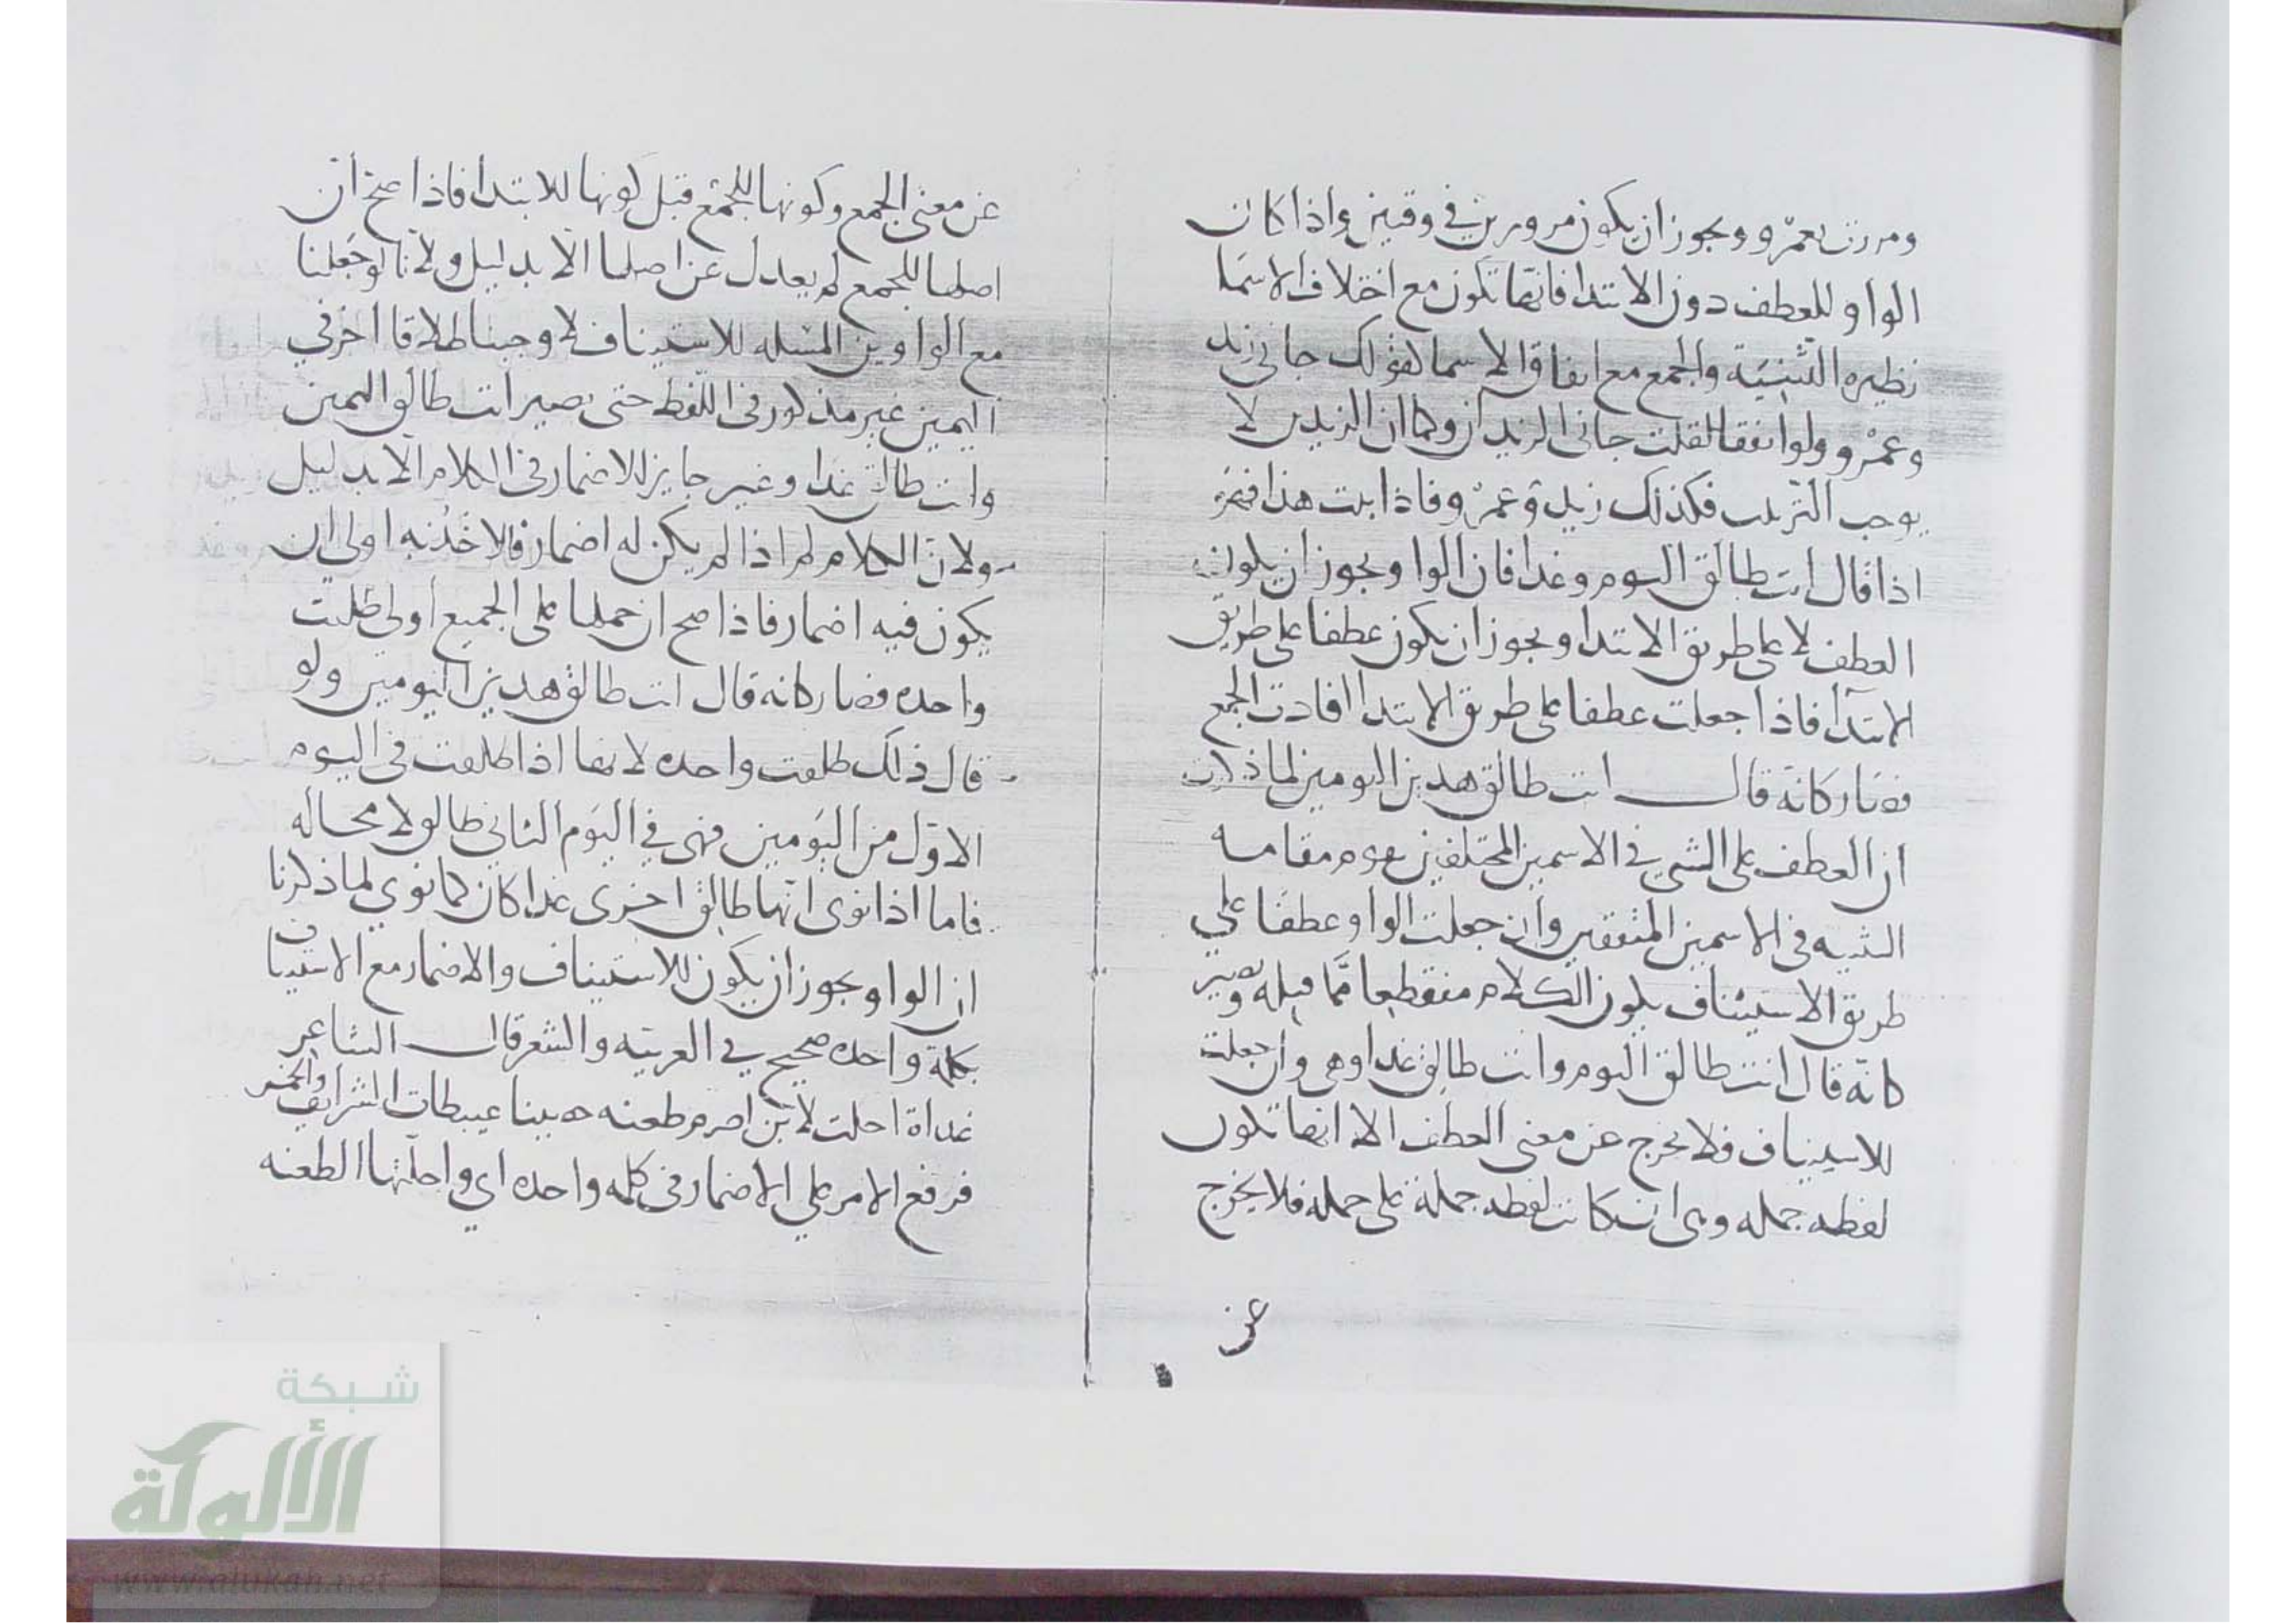 ومررت بعمرو ويجوز ان يكون مرورين في وقتين واذا كان
الواو للعطف دون الابتدا فانها تكون مع اختلاف الاسما
نظيره التثنية والجمع مع اتفاق الاسما كقولك جاني زيد
وعمرو ولو اتفقا لقلت جاني الزيدان وكما ان الزيدين لا
يوجب الترتيب فكذلك زيد وعمرو فاذا ثبت هذا
اذا قال انت طالق اليوم وغدا فان الواو يجوز ان يكون
العطف لا على طريق الابتدا ويجوز ان يكون عطفا على طريق
الابتدآ فاذا جعلت عطفا على طريق الابتدا افادت الجمع
فصار كانه قال انت طالق هذين اليومين لما ذكرت
ان العطف على الشي في الاسمين المختلفين يقوم مقامه
التثنيه في الاسمين المتفقين وان جعلت الواو عطفا على
طريق الاستيناف يكون الكلام منقطعا مما قبله ويصير
كانه قال انت طالق اليوم وانت طالق غدا وهي وان جعلت
للاستيناف فلا يخرج عن معنى العطف الا انها تكون
لعطف جمله وهي ان كانت لعطف جملة على جمله فلا يخرج
عن
عن معنى الجمع وكونها للجمع قبل كونها للابتدا فاذا صح ان
اصلها للجمع لم يعدل عن اصلها الا بدليل ولانا لو جعلنا
مع الواو من المسله للاستيناف لاوجبنا طلاقا اخر في
اليمين غير مذكور في اللفظ حتى يصير انت طالق اليمين
وانت طالق غدا وغير جايز للاضمار في الكلام الا بدليل
ولان الكلام لم اذا لم يكن له اضمار فالاخذ به اولى ان
يكون فيه اضمار فاذا صح ان حملها على الجميع اولى طلقت
واحده فصار كانه قال انت طالق هذين اليومين ولو
قال ذلك طلقت واحده لانها اذا طلقت في اليوم
الاول من اليومين فهي في اليوم الثاني طالق لا محاله
فاما اذا نوى انها طالق اخرى غدا كان كما نوى لما ذكرنا
ان الواو يجوز ان يكون للاستيناف والاضمار مع الاستيناف
بكلمة واحده صحيح في العربيه والشعر قال الشاعر
غداة احلت لابن اصرم طعنه حصينا عبيطات الشرايف والخمر
فرفع الامر على الاضمار في كلمه واحده اي واحلتها الطعنه
شبكة
الألوكة
www.alukah.net